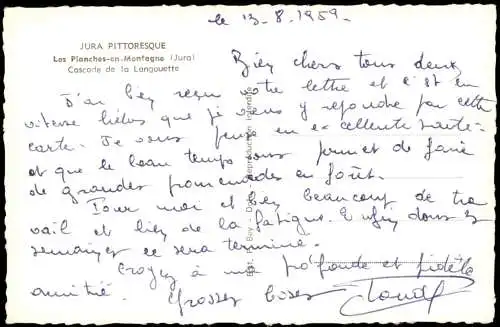 le 13-8-1959-
JURA PITTORESQUE
Les Planches-en-Montagne (Jura)
Cascade de la Langouette
Bien chers tous deux
J'ai bien reçu votre lettre et c'est en
vitesse hélas que je veux y répondre par cette
carte. Je vous pense en excellente santé
et que le beau temps vous permet de faire
de grandes promenades en forêt.
Pour moi et bien beaucoup de tra
vail et bien de la fatigue. Enfin dans
semaines ce sera terminé.
Croyez à ma profonde et fidèle
amitié. Grosses bises
Reproduction interdite